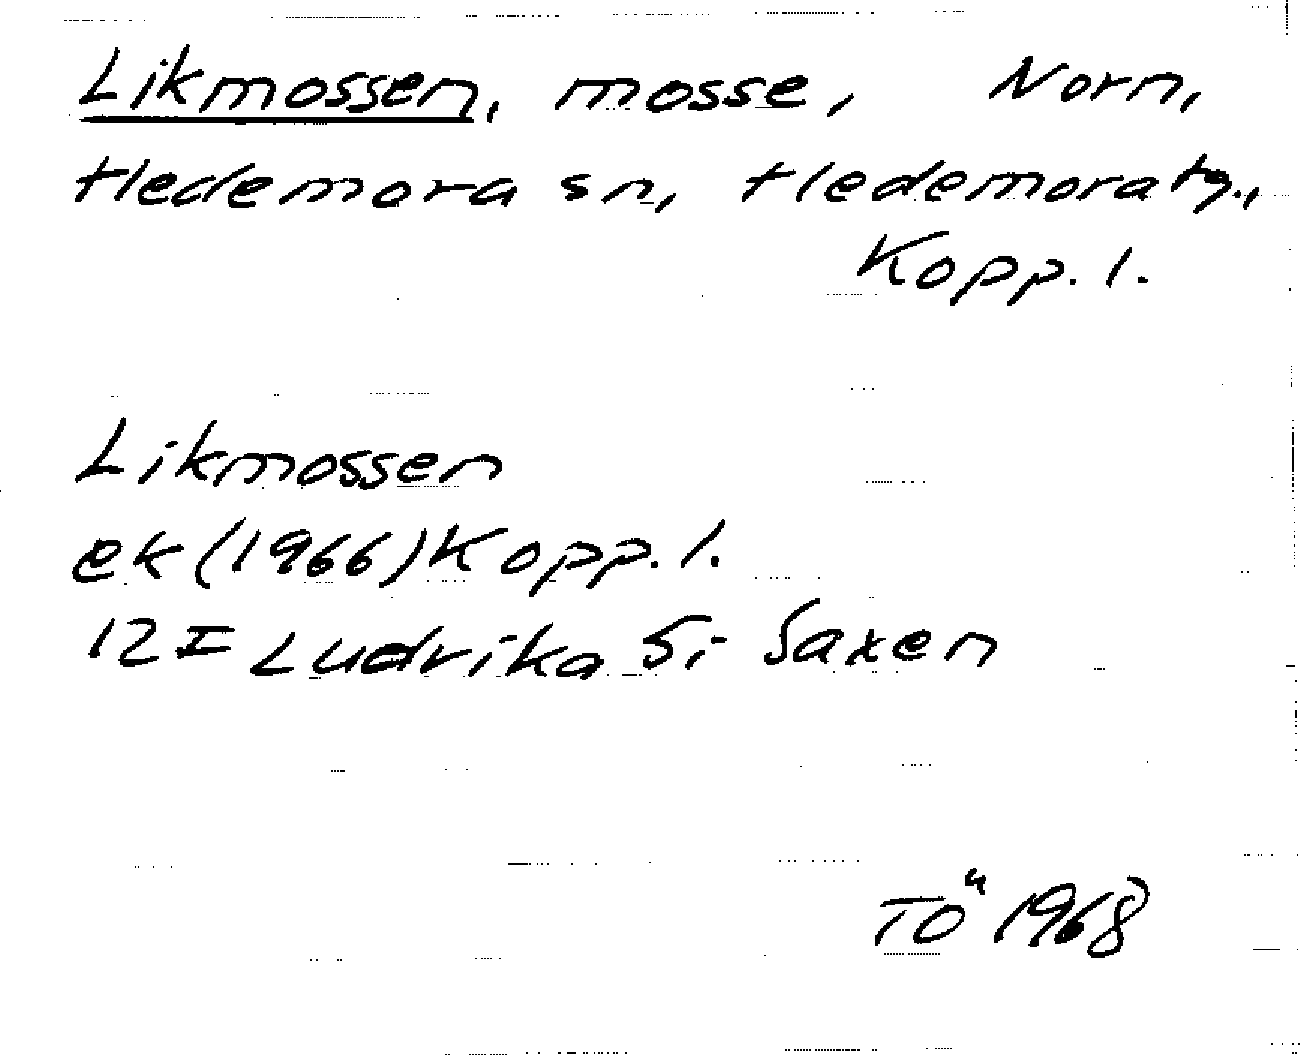 Likmossen, mosse, Norn,
Hedemora sn, Hedemora tg.,
Kopp. l.
Likmossen
ek (1966) Kopp. l.
12 I Ludvika 5i Saxen
TÖ 1968